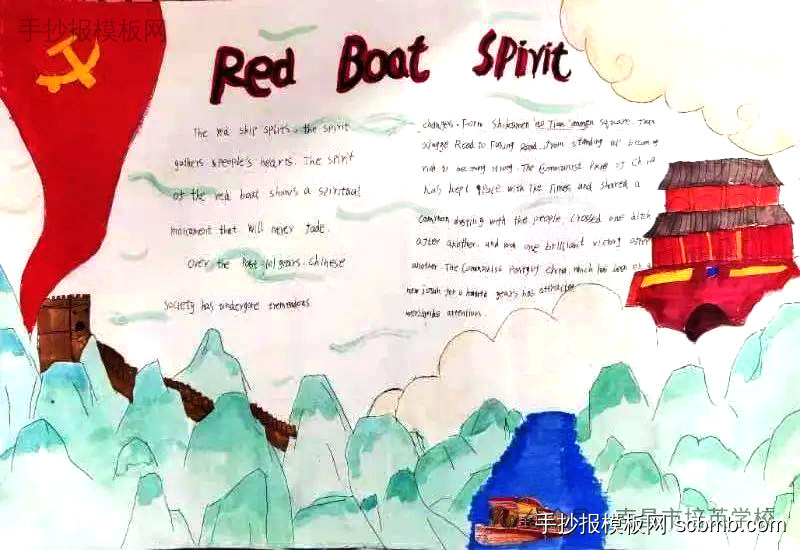 手抄报模板网
Red Boat Spirit
The red ship splits, the spirit
gathers people's hearts. The spirit
of the red boat shows a spiritual
monument that will never fade.
Over the past 101 years, Chinese
society has undergone tremendous
changes. Form Shikumen to Tian'anmen square. From
Road to Road. From standing up becoming
rich to becoming strong. The Communist Party of China
has kept pace with the times and shared a
common destiny with the people, crossed one ditch
after another, and won one brilliant victory after
another. The Communist Party of China, which has been
for a hundred years has attracted
worldwide attention.
南昌市培英学校
手抄报模板网 scbmb.com